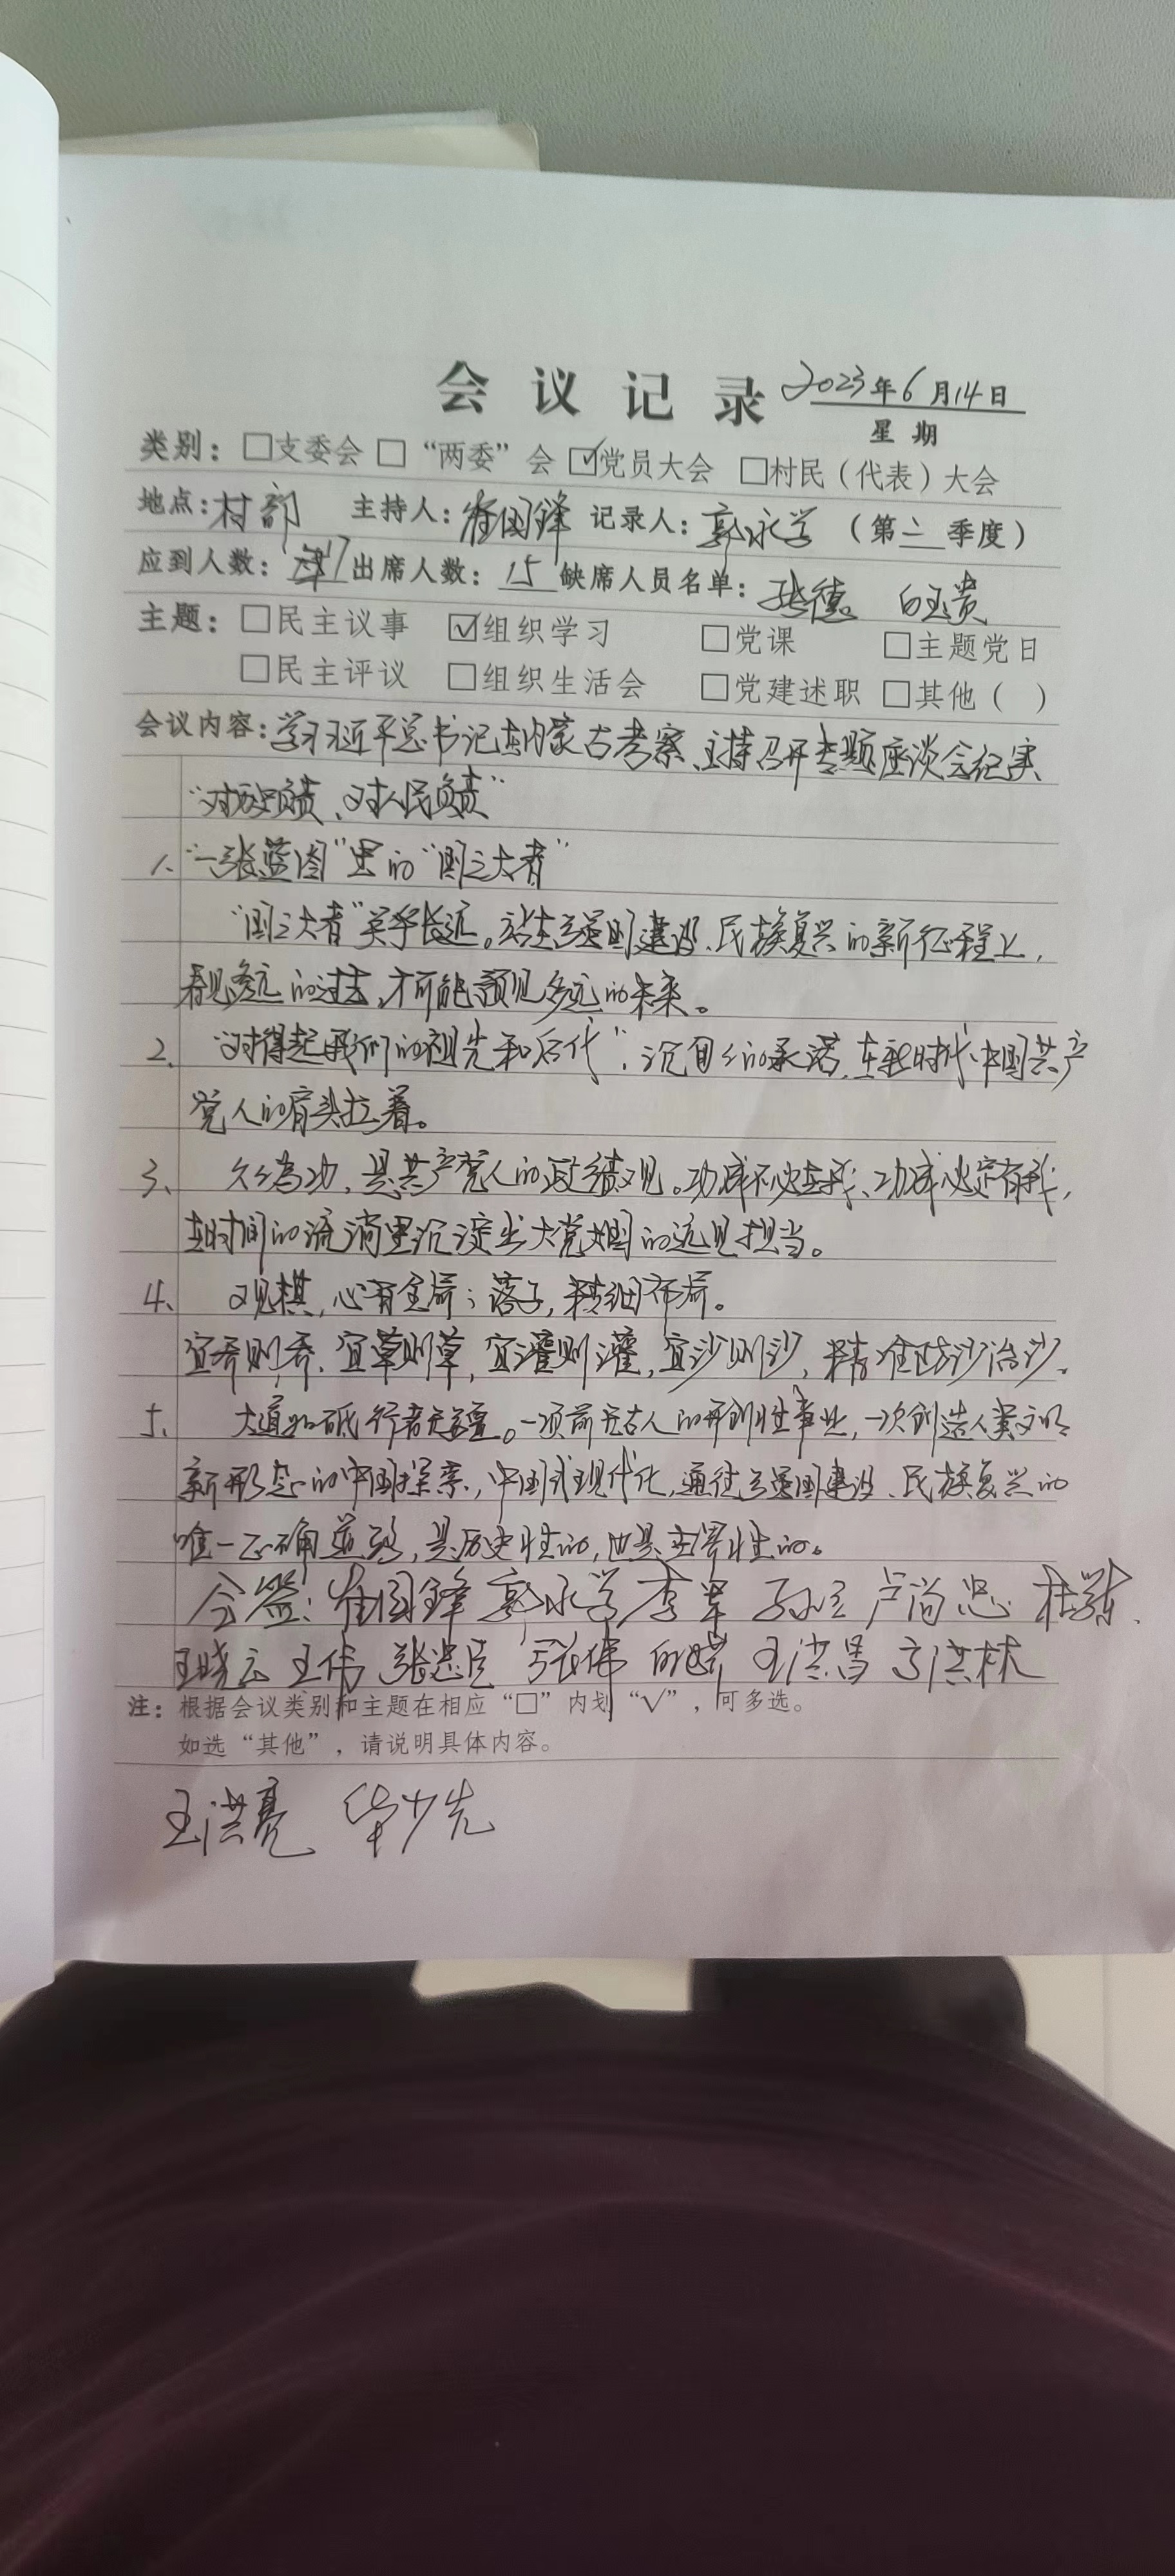 会议记录 2023年6月14日
星期
类别：□支委会 □“两委”会 ☑党员大会 □村民（代表）大会
地点：村部 主持人：崔国锋 记录人：郭永学（第二季度）
应到人数：17 出席人数：15 缺席人员名单：张德 白玉贵
主题：□民主议事 ☑组织学习 □党课 □主题党日
□民主评议 □组织生活会 □党建述职 □其他（ ）
会议内容：学习习近平总书记在内蒙古考察、主持召开专题座谈会纪实
“对历史负责、对人民负责”
1、“一张蓝图”里的“国之大者”
“国之大者”关乎长远。站在强国建设、民族复兴的新征程上，
看见多远的过去，才可能预见多远的未来。
2、“对得起我们的祖先和后代”，沉甸甸的承诺，在新时代中国共产
党人的肩头扛着。
3、久久为功，是共产党人的政绩观。功成不必在我、功成必定有我，
在时间的流淌里沉淀出大党大国的远见担当。
4、观棋，心有全局；落子，精细布局。
宜乔则乔，宜草则草，宜灌则灌，宜沙则沙，精准防沙治沙。
5、大道如砥 行者无疆。一项前无古人的开创性事业，一次创造人类文明
新形态的中国探索，中国式现代化，通往强国建设、民族复兴的
唯一正确道路，是历史性的，也是世界性的。
会签：崔国锋 郭永学 李军 卢尚忠
王晓云 王伟 张忠臣 张伟 王洪昌
注：根据会议类别和主题在相应“□”内划“√”，可多选。
如选“其他”，请说明具体内容。
王洪亮 毕少先